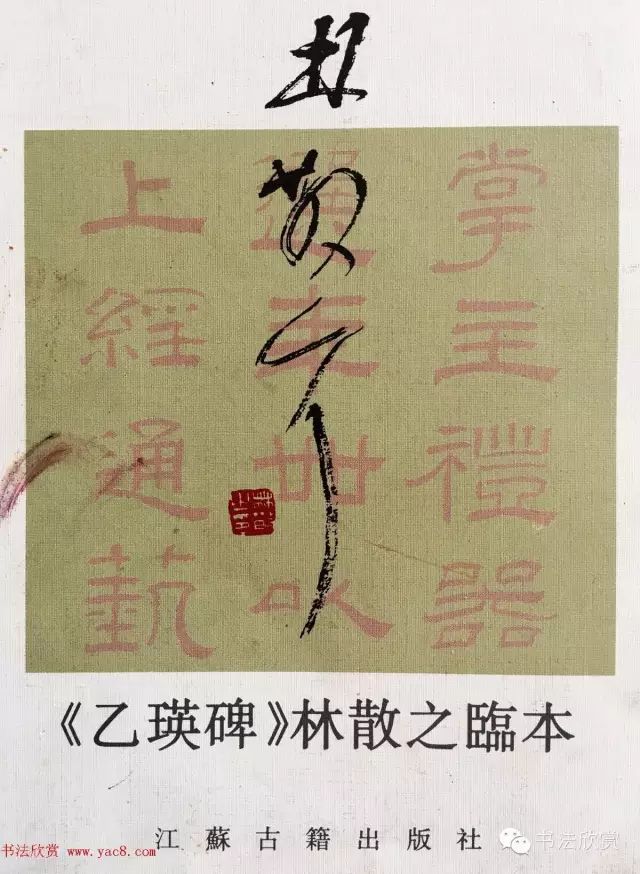 林散耳
掌主禮器
選年卌以
上經通藝
《乙瑛碑》林散之臨本
江蘇古籍出版社
书法欣赏 www.yac8.com
书法欣赏